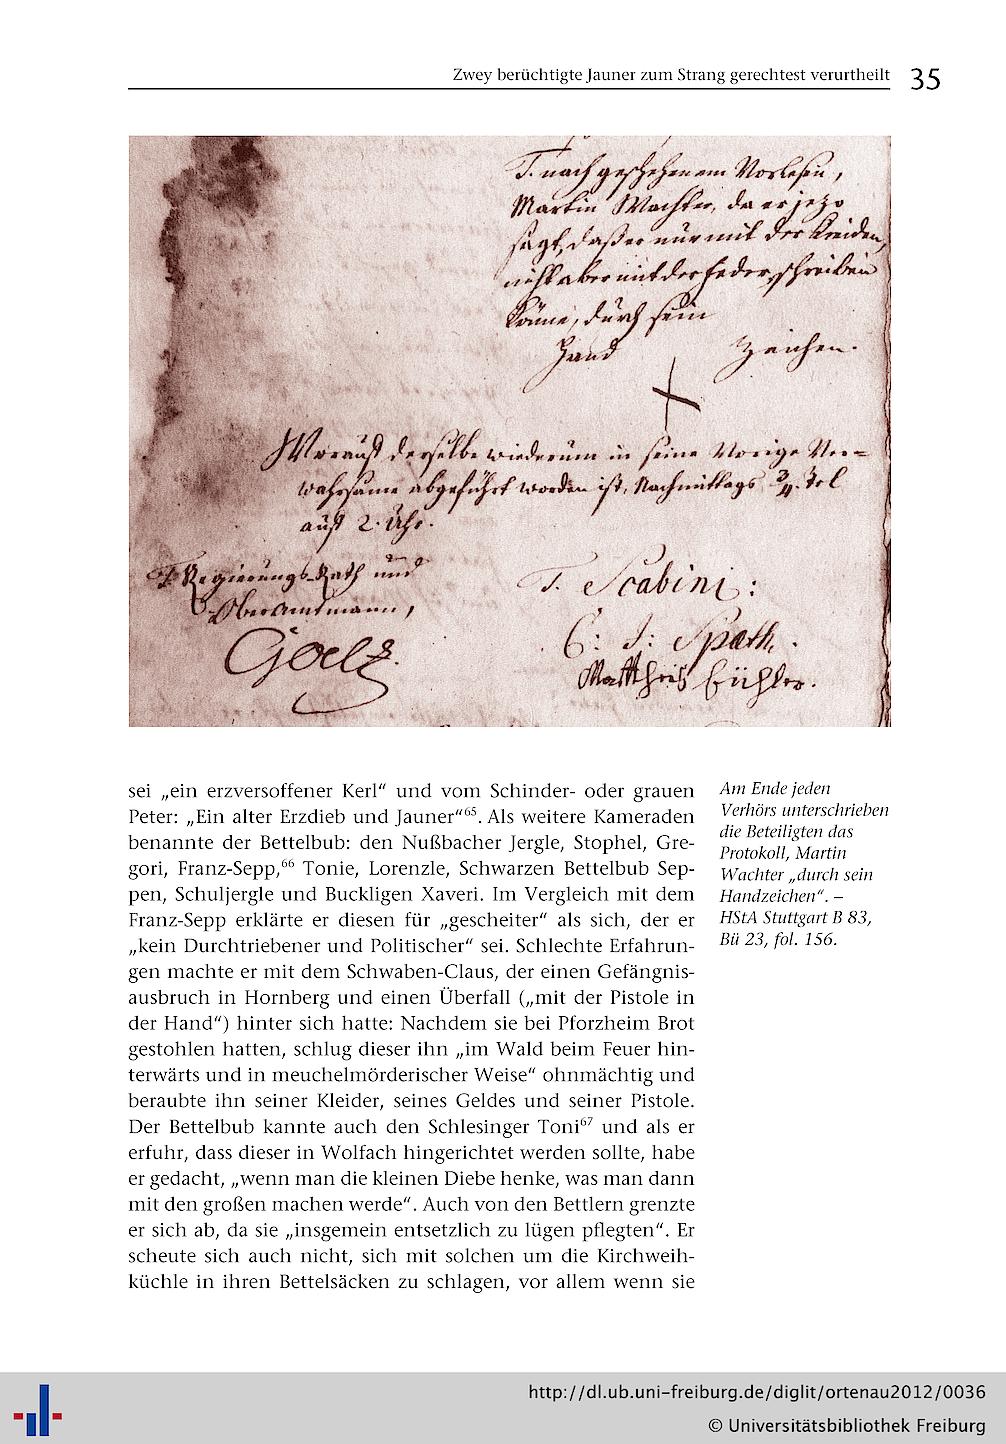 Zwey berüchtigte Jauner zum Strang gerechtest verurtheilt 35
T. nach geschehenem Vorlesen,
Martin Wachter, da er jezo
sagt, daß er nur mit der Kreiden,
nicht aber mit der Feder schreiben
könne, durch sein
Hand Zeichen.
Worauf derselbe wiederum in seine Vorige Ver=
wahrsame abgeführt worden ist, Nachmittags 3/4. tel
auf 2. Uhr.
T. Regierungs-Rath und
OberAmtmann,
Goelz.
T. Scabini:
C: J: Spath.
Mattheis Eichler.
sei „ein erzversoffener Kerl“ und vom Schinder- oder grauen
Peter: „Ein alter Erzdieb und Jauner“65. Als weitere Kameraden
benannte der Bettelbub: den Nußbacher Jergle, Stophel, Gre-
gori, Franz-Sepp,66 Tonie, Lorenzle, Schwarzen Bettelbub Sep-
pen, Schuljergle und Buckligen Xaveri. Im Vergleich mit dem
Franz-Sepp erklärte er diesen für „gescheiter“ als sich, der er
„kein Durchtriebener und Politischer“ sei. Schlechte Erfahrun-
gen machte er mit dem Schwaben-Claus, der einen Gefängnis-
ausbruch in Hornberg und einen Überfall („mit der Pistole in
der Hand“) hinter sich hatte: Nachdem sie bei Pforzheim Brot
gestohlen hatten, schlug dieser ihn „im Wald beim Feuer hin-
terwärts und in meuchelmörderischer Weise“ ohnmächtig und
beraubte ihn seiner Kleider, seines Geldes und seiner Pistole.
Der Bettelbub kannte auch den Schlesinger Toni67 und als er
erfuhr, dass dieser in Wolfach hingerichtet werden sollte, habe
er gedacht, „wenn man die kleinen Diebe henke, was man dann
mit den großen machen werde“. Auch von den Bettlern grenzte
er sich ab, da sie „insgemein entsetzlich zu lügen pflegten“. Er
scheute sich auch nicht, sich mit solchen um die Kirchweih-
küchle in ihren Bettelsäcken zu schlagen, vor allem wenn sie
Am Ende jeden
Verhörs unterschrieben
die Beteiligten das
Protokoll, Martin
Wachter „durch sein
Handzeichen“. –
HStA Stuttgart B 83,
Bü 23, fol. 156.
http://dl.ub.uni-freiburg.de/diglit/ortenau2012/0036
© Universitätsbibliothek Freiburg